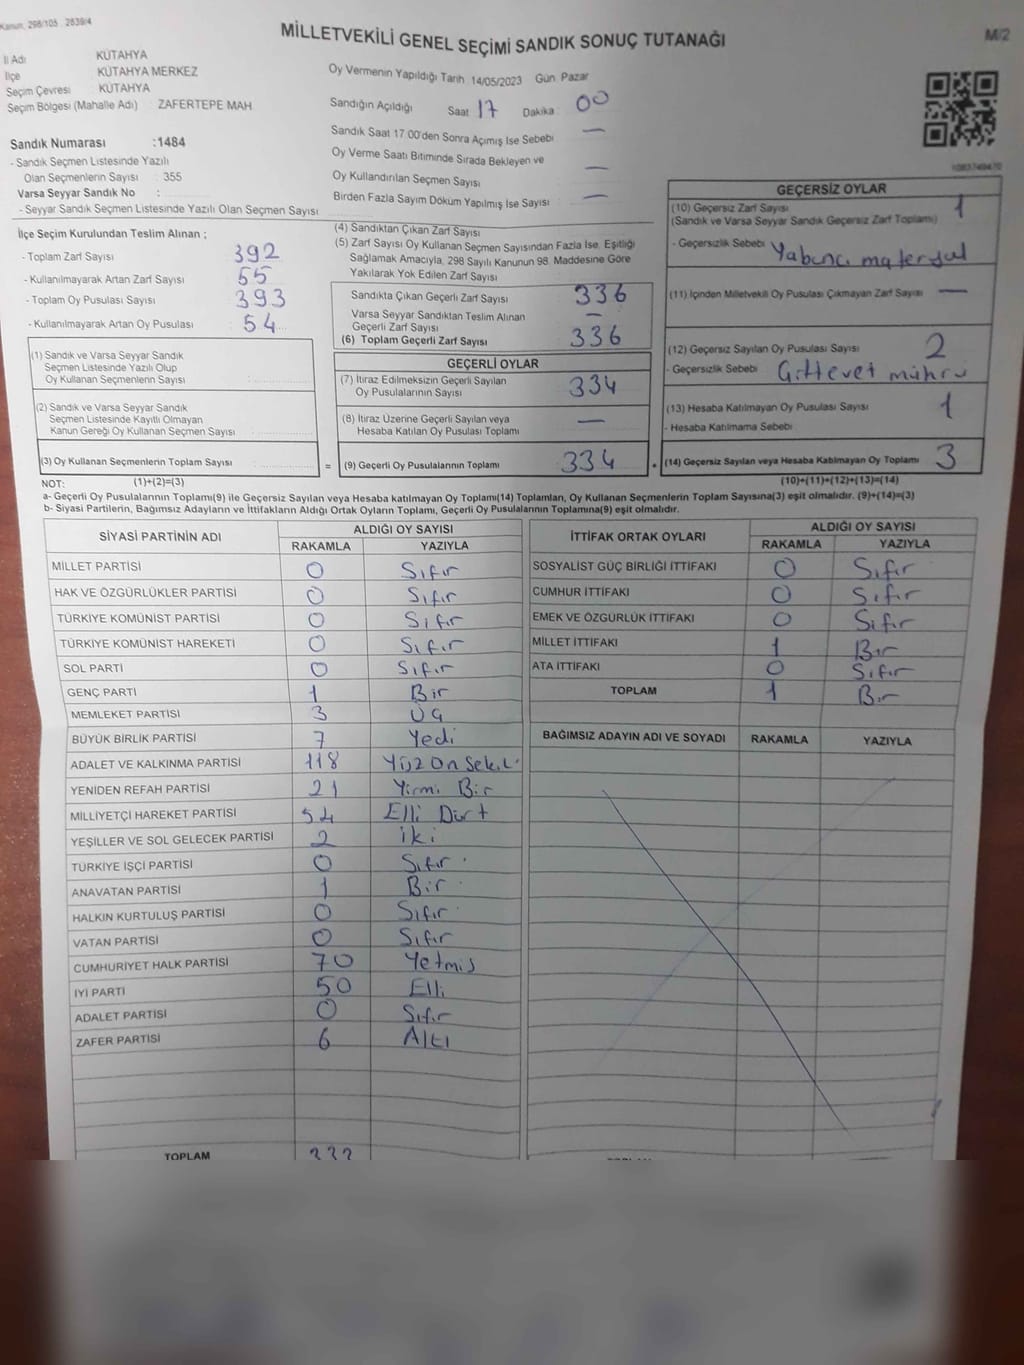 Kanun, 298/105 . 2839/4
MİLLETVEKİLİ GENEL SEÇİMİ SANDIK SONUÇ TUTANAĞI
M/2
İl Adı KÜTAHYA
İlçe KÜTAHYA MERKEZ
Seçim Çevresi : KÜTAHYA
Seçim Bölgesi (Mahalle Adı) : ZAFERTEPE MAH
Sandık Numarası :1484
- Sandık Seçmen Listesinde Yazılı
Olan Seçmenlerin Sayısı : 355
Varsa Seyyar Sandık No :
- Seyyar Sandık Seçmen Listesinde Yazılı Olan Seçmen Sayısı
Oy Vermenin Yapıldığı Tarih 14/05/2023 Gün Pazar
Sandığın Açıldığı Saat 17 Dakika : 00
Sandık Saat 17.00'den Sonra Açımış İse Sebebi —
Oy Verme Saati Bitiminde Sırada Bekleyen ve
Oy Kullandırılan Seçmen Sayısı —
Birden Fazla Sayım Döküm Yapılmış İse Sayısı —
İlçe Seçim Kurulundan Teslim Alınan ;
- Toplam Zarf Sayısı : 392
- Kullanılmayarak Artan Zarf Sayısı : 55
- Toplam Oy Pusulası Sayısı : 393
- Kullanılmayarak Artan Oy Pusulası : 54
(1) Sandık ve Varsa Seyyar Sandık
Seçmen Listesinde Yazılı Olup
Oy Kullanan Seçmenlerin Sayısı :
(2) Sandık ve Varsa Seyyar Sandık
Seçmen Listesinde Kayıtlı Olmayan
Kanun Gereği Oy Kullanan Seçmen Sayısı :
(3) Oy Kullanan Seçmenlerin Toplam Sayısı :
(4) Sandıktan Çıkan Zarf Sayısı
(5) Zarf Sayısı Oy Kullanan Seçmen Sayısından Fazla İse, Eşitliği
Sağlamak Amacıyla, 298 Sayılı Kanunun 98. Maddesine Göre
Yakılarak Yok Edilen Zarf Sayısı
Sandıkta Çıkan Geçerli Zarf Sayısı 336
Varsa Seyyar Sandıktan Teslim Alınan
Geçerli Zarf Sayısı —
(6) Toplam Geçerli Zarf Sayısı 336
GEÇERLİ OYLAR
(7) İtiraz Edilmeksizin Geçerli Sayılan
Oy Pusulalarının Sayısı 334
(8) İtiraz Üzerine Geçerli Sayılan veya
Hesaba Katılan Oy Pusulası Toplamı —
= (9) Geçerli Oy Pusulalarının Toplamı 334
GEÇERSİZ OYLAR
(10) Geçersiz Zarf Sayısı 1
(Sandık ve Varsa Seyyar Sandık Geçersiz Zarf Toplamı)
- Geçersizlik Sebebi Yabancı materyal
(11) İçinden Milletvekili Oy Pusulası Çıkmayan Zarf Sayısı —
(12) Geçersiz Sayılan Oy Pusulası Sayısı 2
- Geçersizlik Sebebi : mührü
(13) Hesaba Katılmayan Oy Pusulası Sayısı 1
- Hesaba Katılmama Sebebi
(14) Geçersiz Sayılan veya Hesaba Katılmayan Oy Toplamı 3
NOT: (1)+(2)=(3) (10)+(11)+(12)+(13)=(14)
a- Geçerli Oy Pusulalarının Toplamı(9) ile Geçersiz Sayılan veya Hesaba katılmayan Oy Toplamı(14) Toplamları, Oy Kullanan Seçmenlerin Toplam Sayısına(3) eşit olmalıdır. (9)+(14)=(3)
b- Siyasi Partilerin, Bağımsız Adayların ve İttifakların Aldığı Ortak Oyların Toplamı, Geçerli Oy Pusulalarının Toplamına(9) eşit olmalıdır.
SİYASİ PARTİNİN ADI ALDIĞI OY SAYISI
RAKAMLA YAZIYLA
MİLLET PARTİSİ 0 Sıfır
HAK VE ÖZGÜRLÜKLER PARTİSİ 0 Sıfır
TÜRKİYE KOMÜNİST PARTİSİ 0 Sıfır
TÜRKİYE KOMÜNİST HAREKETİ 0 Sıfır
SOL PARTİ 0 Sıfır
GENÇ PARTİ 1 Bir
MEMLEKET PARTİSİ 3 Üç
BÜYÜK BİRLİK PARTİSİ 7 Yedi
ADALET VE KALKINMA PARTİSİ 118 Yüz On Sekiz
YENİDEN REFAH PARTİSİ 21 Yirmi Bir
MİLLİYETÇİ HAREKET PARTİSİ 54 Elli Dört
YEŞİLLER VE SOL GELECEK PARTİSİ 2 iki
TÜRKİYE İŞÇİ PARTİSİ 0 Sıfır
ANAVATAN PARTİSİ 1 Bir
HALKIN KURTULUŞ PARTİSİ 0 Sıfır
VATAN PARTİSİ 0 Sıfır
CUMHURİYET HALK PARTİSİ 70 Yetmiş
İYİ PARTİ 50 Elli
ADALET PARTİSİ 0 Sıfır
ZAFER PARTİSİ 6 Altı
TOPLAM 333
İTTİFAK ORTAK OYLARI ALDIĞI OY SAYISI
RAKAMLA YAZIYLA
SOSYALİST GÜÇ BİRLİĞİ İTTİFAKI 0 Sıfır
CUMHUR İTTİFAKI 0 Sıfır
EMEK VE ÖZGÜRLÜK İTTİFAKI 0 Sıfır
MİLLET İTTİFAKI 1 Bir
ATA İTTİFAKI 0 Sıfır
TOPLAM 1 Bir
BAĞIMSIZ ADAYIN ADI VE SOYADI RAKAMLA YAZIYLA